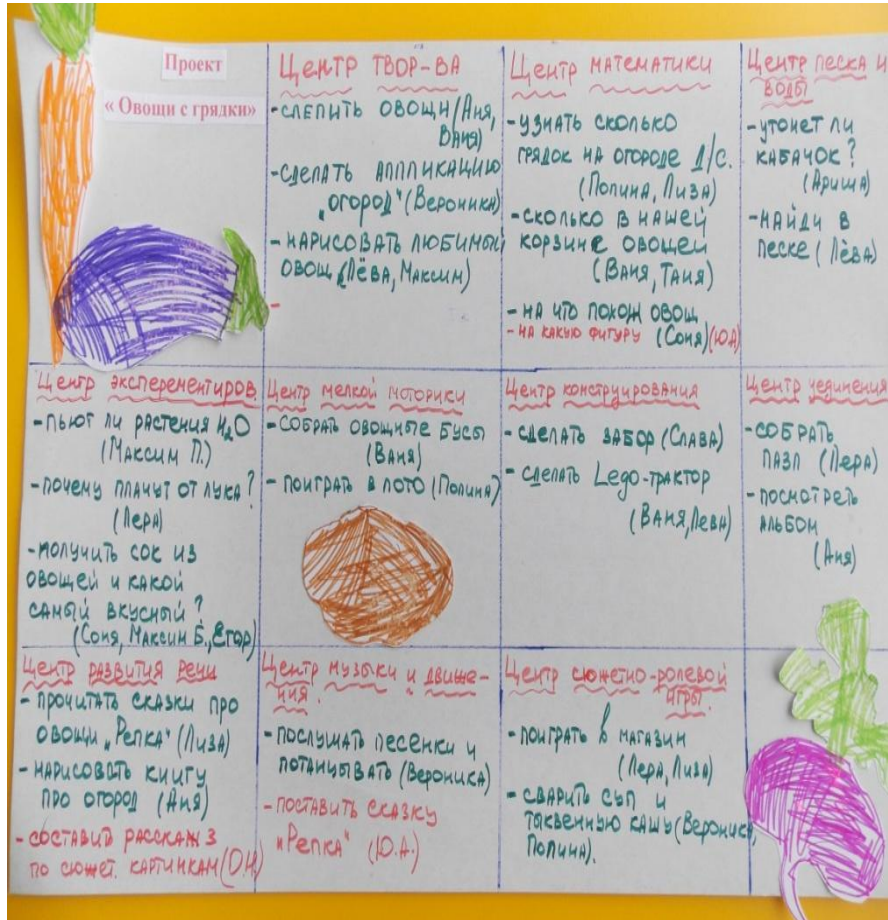 Проект
« Овощи с грядки»
Центр твор-ва
- слепить овощи (Аня,
Ваня)
- сделать аппликацию
„огород" (Вероника)
- нарисовать любимый
овощ (Лёва, Максим)
Центр математики
- узнать сколько
грядок на огороде д/с.
(Полина, Лиза)
- сколько в нашей
корзине овощей
(Ваня, Таня)
- на что похож овощ
- на какую фигуру (Соня) (Ю.А)
Центр песка и
воды
- утонет ли
кабачок?
(Ариша)
- найди в
песке (Лёва)
Центр эксперементиров.
- пьют ли растения H₂O
(Максим П.)
- почему плачут от лука?
(Лера)
- получить сок из
овощей и какой
самый вкусный?
(Соня, Максим Б., Егор)
Центр мелкой моторики
- собрать овощные бусы
(Ваня)
- поиграть в лото (Полина)
Центр конструирования
- сделать забор (Слава)
- сделать Lego-трактор
(Ваня, Лева)
Центр уединения
- собрать
пазл (Лера)
- посмотреть
альбом
(Аня)
Центр развития речи
- прочитать сказки про
овощи „Репка" (Лиза)
- нарисовать книгу
про огород (Аня)
- составит рассказ з
по сюжет. картинкам (О.Н.)
Центр музыки и движе-
ния.
- послушать песенки и
потанцывать (Вероника)
- поставить сказку
„Репка" (Ю.А.)
Центр сюжетно-ролевой
игры.
- поиграть в магазин
(Лера, Лиза)
- сварить суп и
тыквенную кашу (Вероника,
Полина).